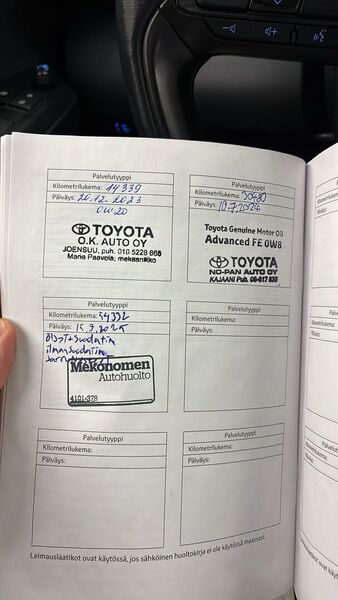 Palvelutyyppi
Kilometrilukema: 14339
Päiväys: 20.12.2023
OW20
TOYOTA
O.K. AUTO OY
JOENSUU, puh. 010 5228 665
Maria Paavola, mekaanikko
Palvelutyyppi
Kilometrilukema: 30430
Päiväys: 19.7.2024
Toyota Genuine Motor Oil
Advanced FE 0W8
TOYOTA
NO-PAN AUTO OY
KAJAANI Puh.
Palvelutyyppi
Kilometrilukema: 54332
Päiväys: 15.9.2025
Öljyt+Suodatin
ilmansuodatin
Mekonomen
Autohuolto
4101-078
Palvelutyyppi
Kilometrilukema:
Päiväys:
Palvelutyyppi
Kilometrilukema:
Päiväys:
Palvelutyyppi
Kilometrilukema:
Päiväys:
Leimauslaatikot ovat käytössä, jos sähköinen huoltokirja ei ole käytössä maassasi.